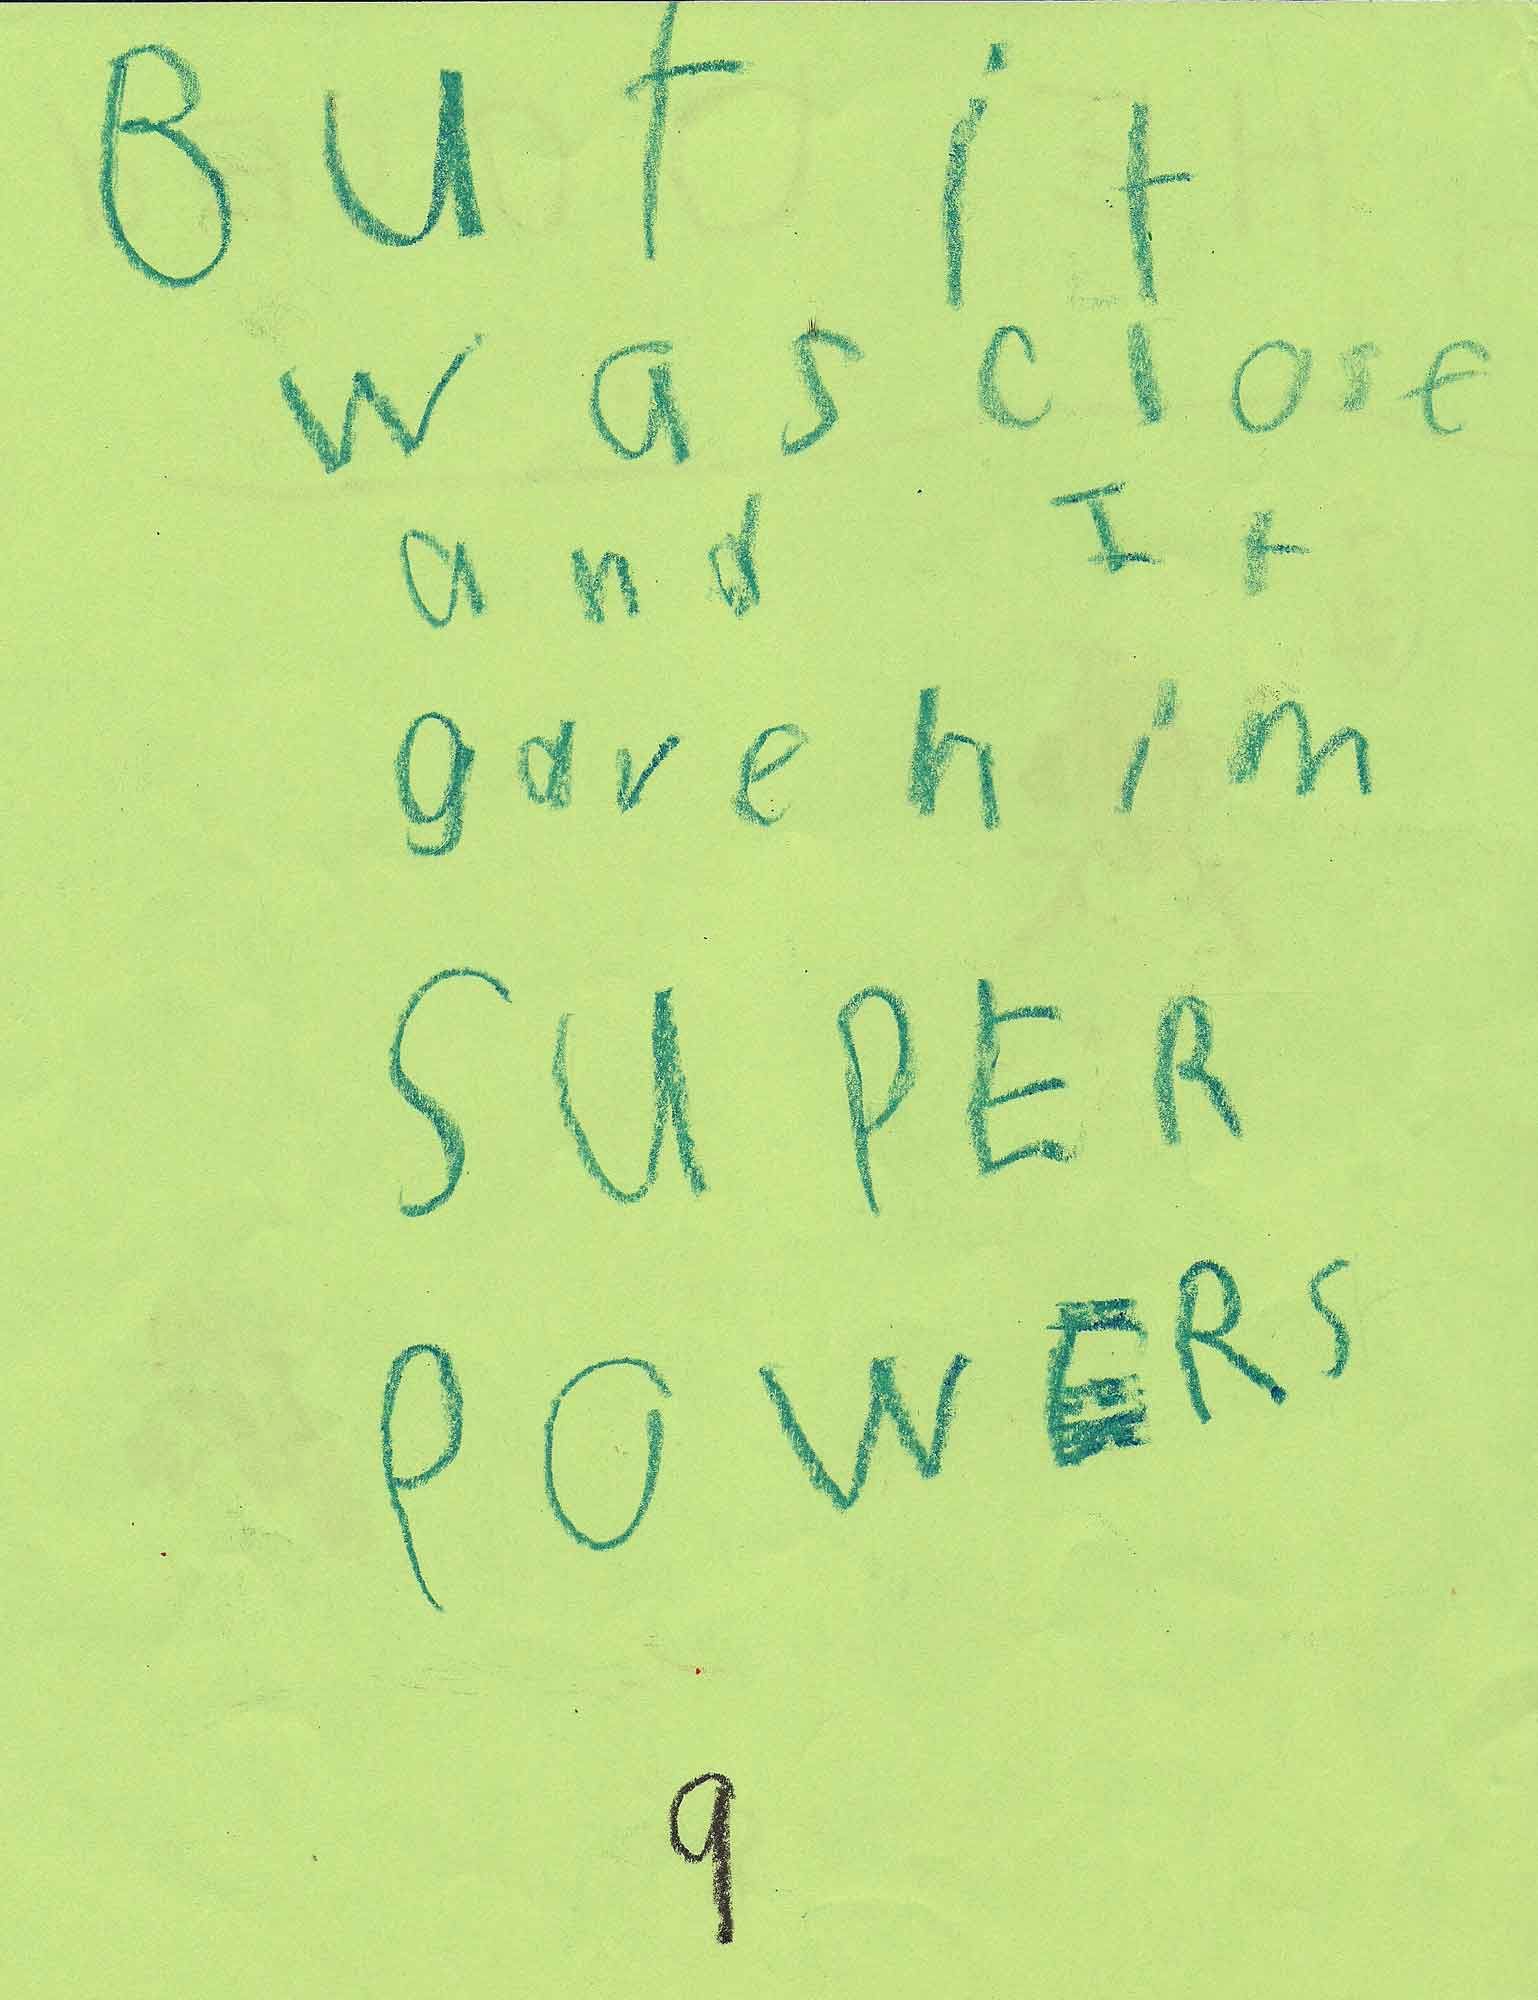 But it
was close
and It
gave him
SUPER
POWERS
9